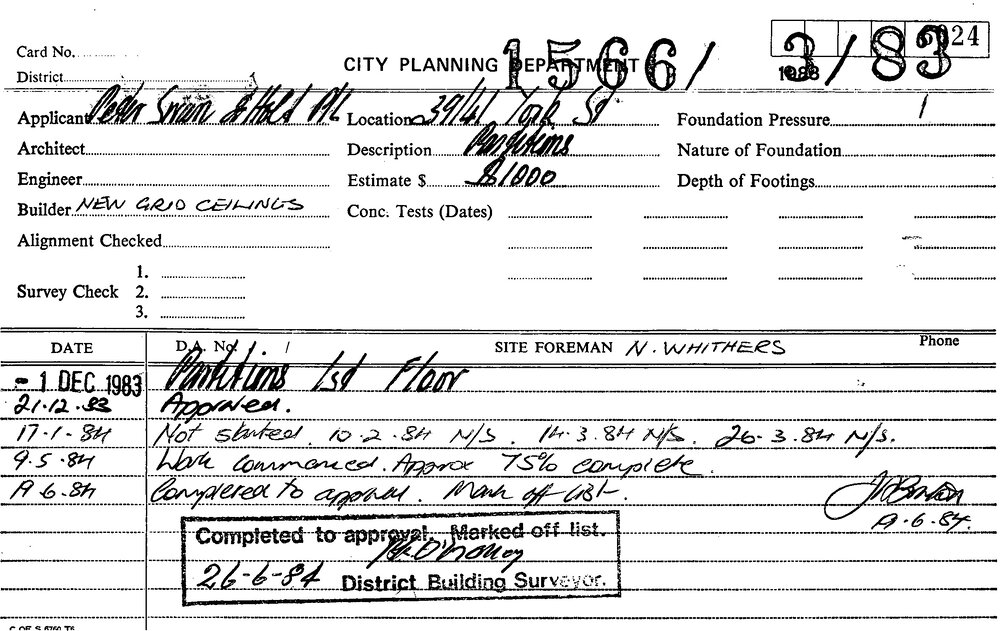 Card No.
District
CITY PLANNING DEPARTMENT
1566/3/83
1983
24
Applicant Peter Swan & Hold P/L Location 39/41 York St Foundation Pressure
Architect Description Partitions Nature of Foundation
Engineer Estimate $ $1000 Depth of Footings
Builder NEW GRID CEILINGS Conc. Tests (Dates)
Alignment Checked
1.
Survey Check 2.
3.
DATE D.A. No. / SITE FOREMAN N. WHITHERS Phone
- 1 DEC 1983 Partitions 1st Floor
21.12.83 Approved.
17-1-84 Not started. 10-2-84 N/S. 14-3.84 N/S. 26-3.84 N/S.
9.5-84 Work commenced. Approx 75% complete.
19-6-84 Completed to approval. Mark off list.
19-6-84.
Completed to approval. Marked off list.
26-6-84 District Building Surveyor.
C OF S 6760 T6